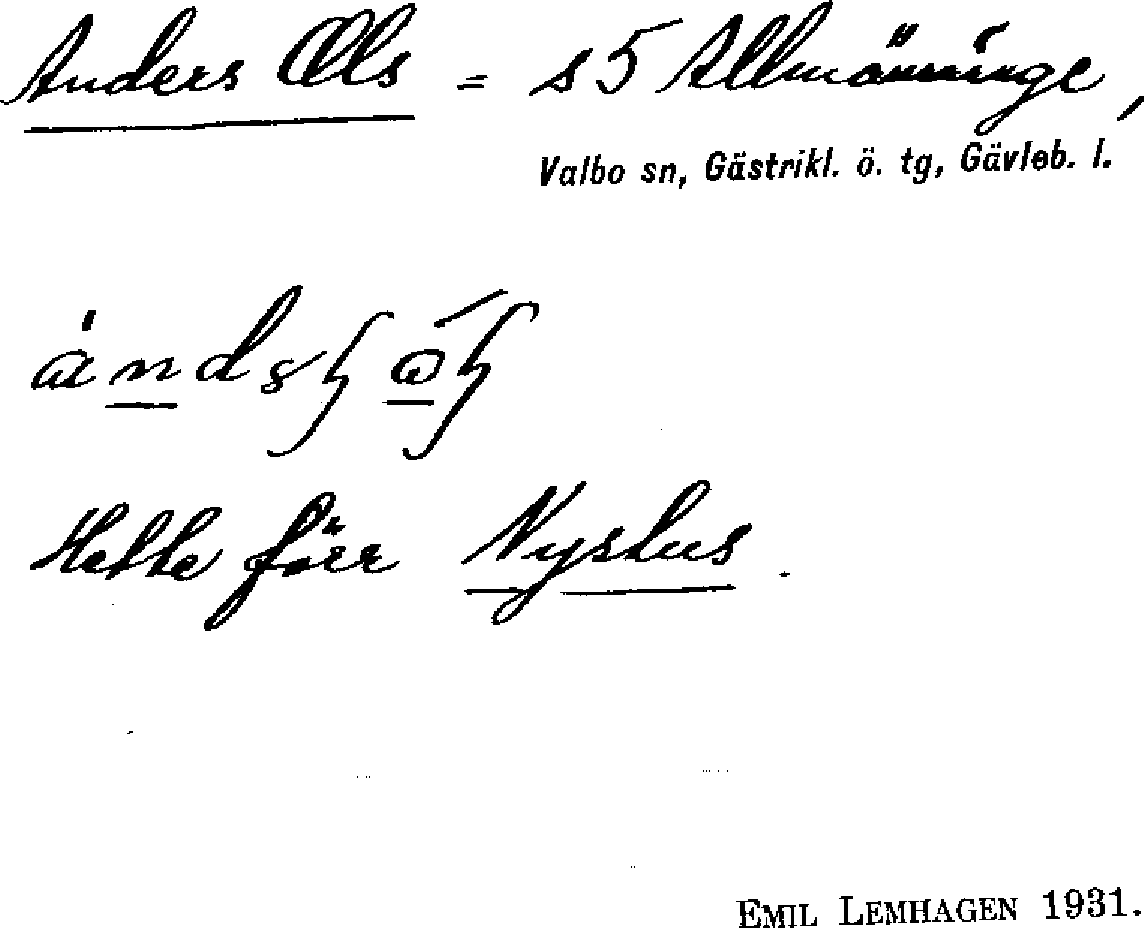 Anders Ols = s 5 Allmänninge,
Valbo sn, Gästrikl. ö. tg, Gävleb. l.
Hette förr Nyshus.
EMIL LEMHAGEN 1931.